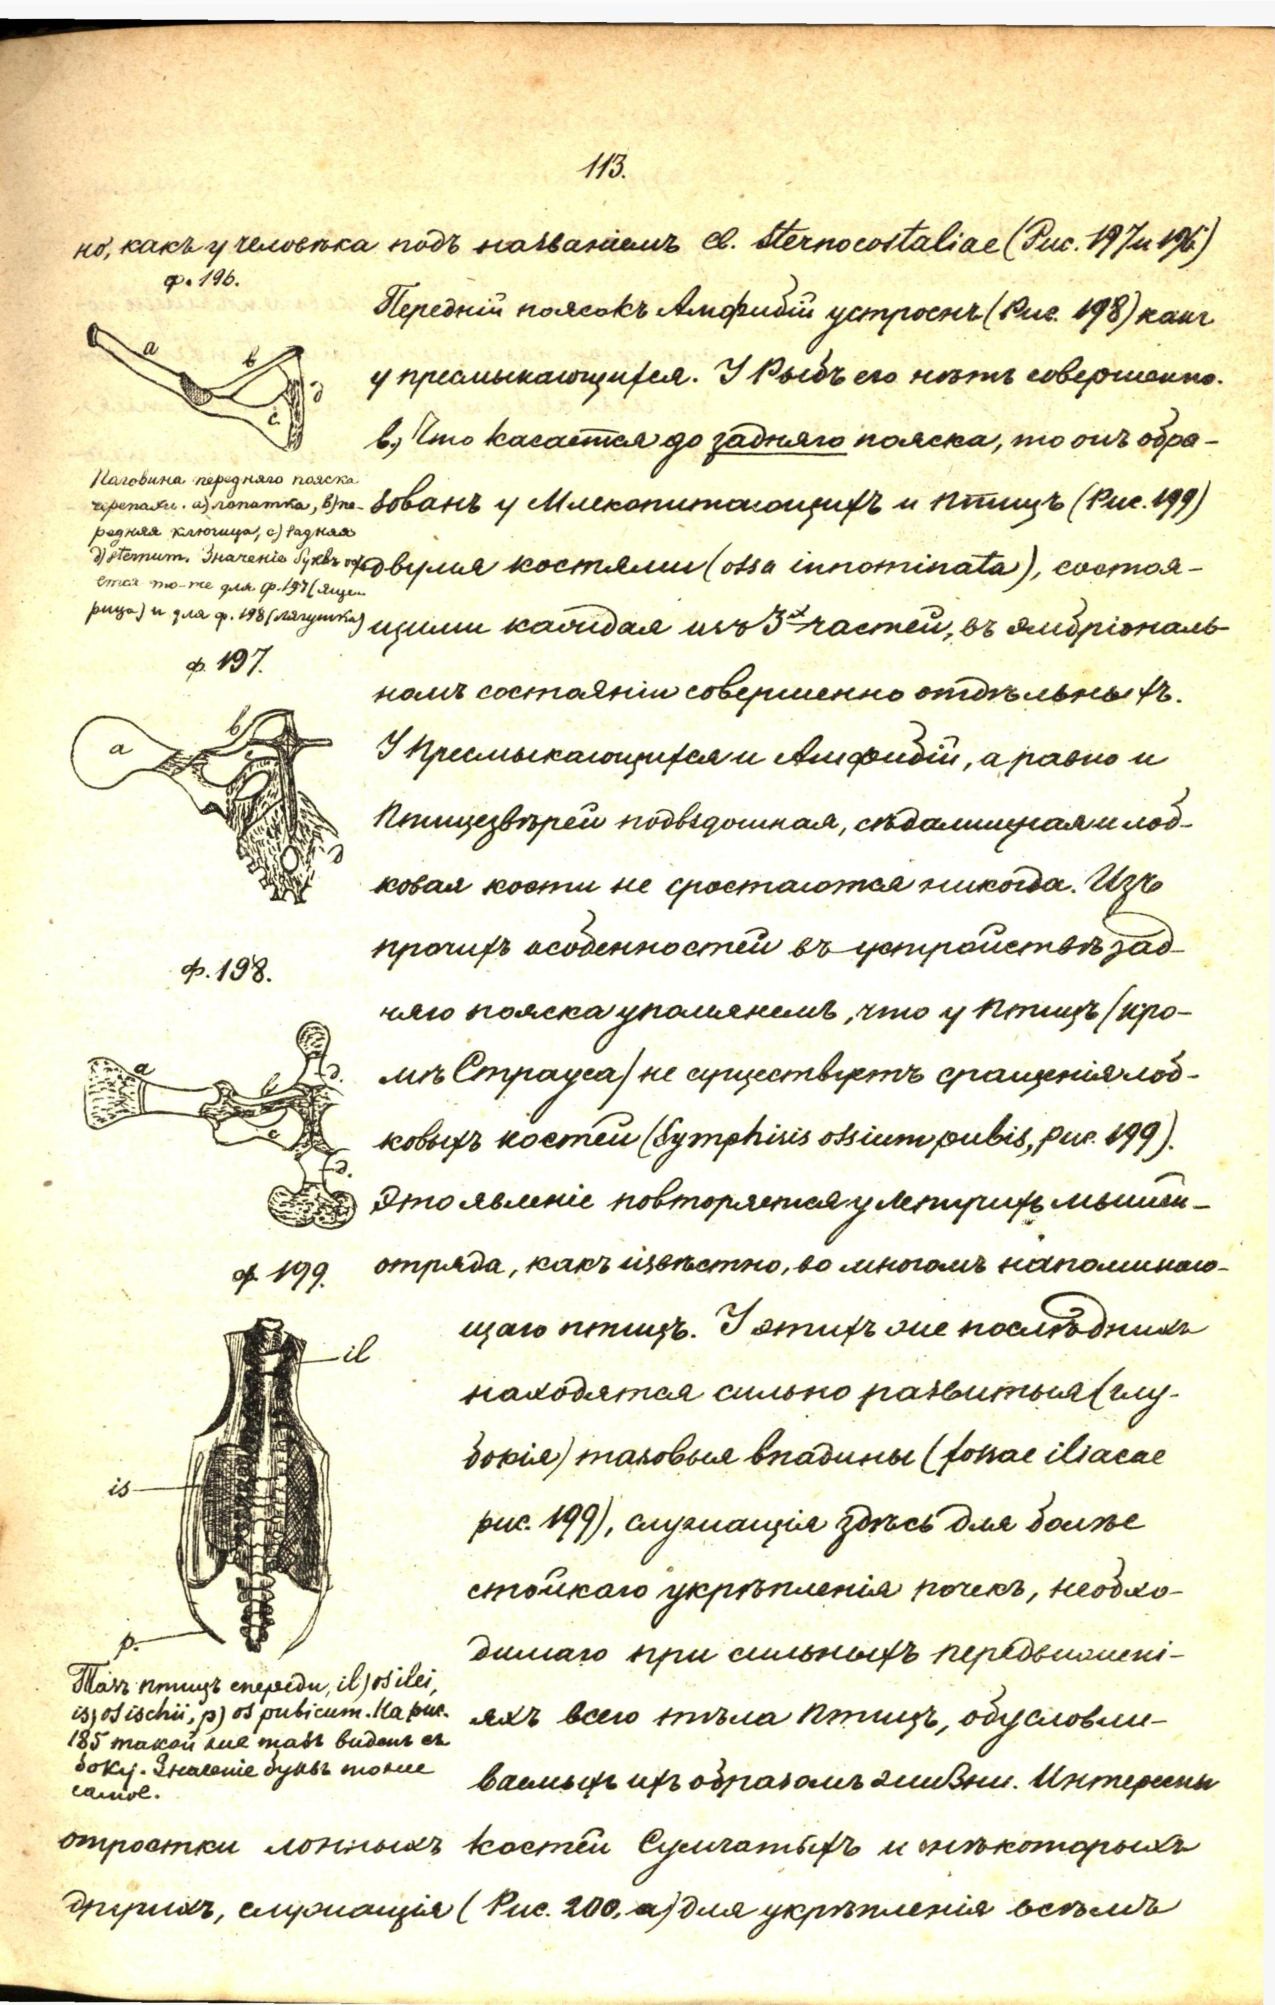 113.
но, какъ у человѣка подъ названіемъ cl. sternocostaliae (Рис. 197 и 196)
ф. 196.
Передній поясокъ Амфибій устроенъ (Рис. 198) какъ
у пресмыкающихся. У Рыбъ его нѣтъ совершенно.
в) Что касается до задняго пояска, то онъ обра-
зованъ у Млекопитающихъ и Птицъ (Рис. 199)
двумя костями (ossa innominata), состоя-
щими каждая изъ 3х частей, въ эмбріональ-
номъ состояніи совершенно отдѣльныхъ.
a
b
c
d
Половина передняго пояска
черепахи. a) лопатка, b) пе-
редняя ключица, c) задняя
d) sternum. Значеніе буквъ оста-
ется то-же для ф. 197 (яще-
рица) и для ф. 198 (лягушка)
ф. 197.
a
b
c
d
У Пресмыкающихся и Амфибій, а равно и
Птицезвѣрей подвздошная, сѣдалищная и лоб-
ковая кости не сростаются никогда. Изъ
прочихъ особенностей въ устройствѣ зад-
няго пояска упомянемъ, что у Птицъ (кро-
мѣ Страуса) не существуетъ сращенія лоб-
ковыхъ костей (Symphisis ossium pubis, рис. 199).
Это явленіе повторяется у летучихъ мышей-
отряда, какъ извѣстно, во многомъ напоминаю-
щаго птицъ. У этихъ же послѣднихъ
находятся сильно развитыя (глу-
бокія) тазовыя впадины (fossae iliacae
рис. 199), служащія здѣсь для болѣе
стойкаго укрѣпленія почекъ, необхо-
димаго при сильныхъ передвиженi-
яхъ всего тѣла Птицъ, обусловли-
ваемыхъ ихъ образомъ жизни. Интересны
ф. 198.
a
b
c
d.
d.
ф. 199.
il
is
p.
Тазъ птицъ спереди, il) os ilei,
is) os ischii, p) os pubicum. На рис.
185 такой же тазъ виденъ съ
боку. Значеніе буквъ тоже
самое.
отростки лонныхъ костей Сумчатыхъ и нѣкоторыхъ
другихъ, служащія (Рис. 200, a) для укрѣпленія всѣмъ